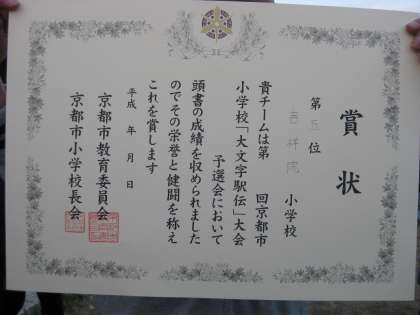 賞状
第五位
吉祥院 小学校
貴チームは第 回京都市
小学校「大文字駅伝」大会
予選会において
頭書の成績を収められました
のでその栄誉と健闘を称え
これを賞します
平成 年 月 日
京都市教育委員会
京都市小学校長会